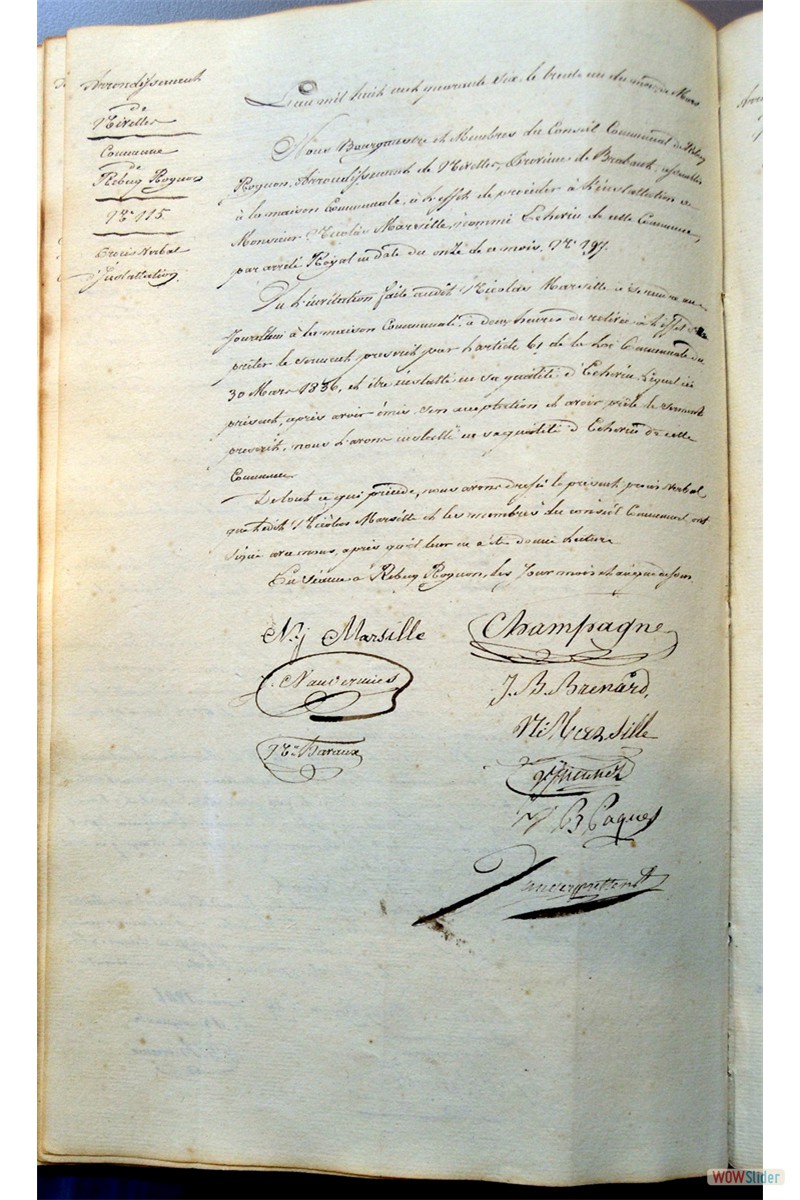 Arrondissement
de
Nivelles
Commune
de
Rebecq Rognon
N° 115
Procès Verbal
d'Installation
L'an mil huit cent quarante six, le trente un du mois de Mars
Nous Bourgmestre et Membres du Conseil Communal de Rebecq
Rognon, Arrondissement de Nivelles, Province de Brabant, assemblés
à la maison Communale, à l'effet de procéder à l'installation de
Monsieur Nicolas Marsille, nommé Echevin de cette Commune,
par arrêté Royal en date du onze de ce mois, N° 197.
Vu l'invitation faite audit Nicolas Marsille à se rendre
à la maison Communale, à deux heures de relevée à l'effet de
prêter le serment prescrit par l'article 61 de la Loi Communale du
30 Mars 1836, et être installé en sa qualité d'Echevin, Lequel ici
présent, après avoir émis son acceptation et avoir prêté le serment
prescrit, nous l'avons installé en sa qualité d'Echevin de cette
Commune
De tout ce qui précède, nous avons dressé le présent procès verbal
que ledit Nicolas Marsille et les membres du conseil Communal ont
signé avec nous, après qu'il leur en a été donné lecture
En séance à Rebecq Rognon, les Jour mois et an que dessus.
N. J Marsille
Champagne
J. B. Brenard
N: Marsille
N. Havaux
J B Paques
WOWSlider